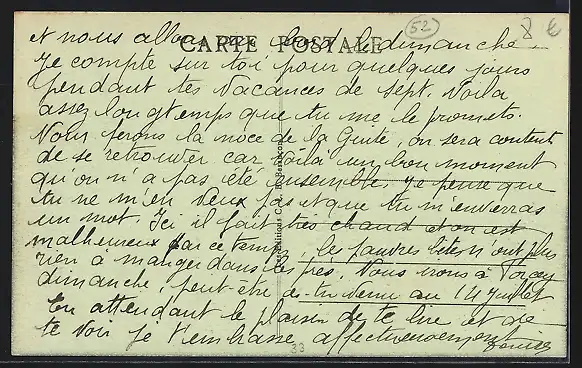 et nous allons au bord le dimanche.
CARTE POSTALE
52
8 €
Je compte sur toi pour quelques jours
pendant tes vacances de sept. Voilà
assez longtemps que tu me le promets.
Nous ferons la noce de la Guite, on sera contents
de se retrouver car voilà un bon moment
qu'on n'a pas été ensemble. Je pense que
tu ne m'en veux pas et que tu m'enverras
un mot. Ici il fait très chaud et on est
malheureux par ce temps, les pauvres bêtes n'ont plus
rien à manger dans les prés. Nous irons à
dimanche, peut-être es-tu venu au 14 Juillet
En attendant le plaisir de te lire et de
te voir je t'embrasse affectueusement
33